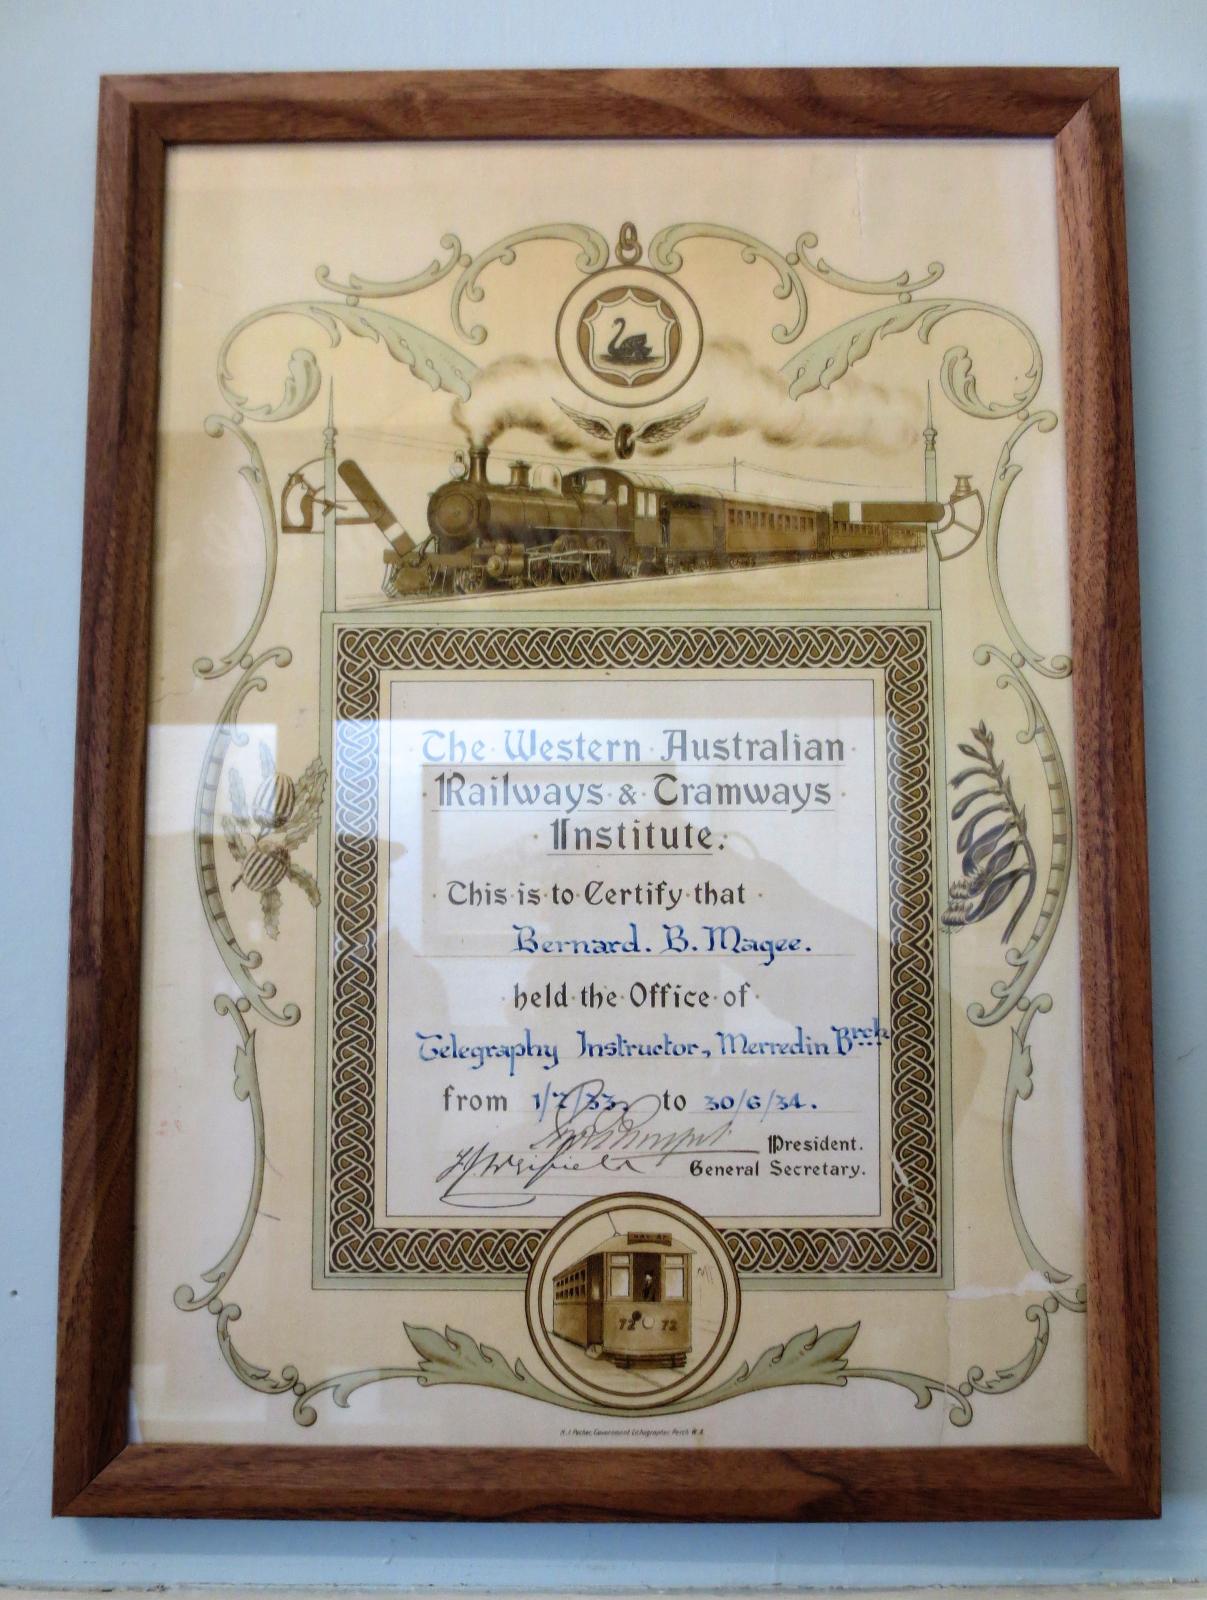 The Western Australian
Railways & Tramways
Institute.
This is to Certify that
Bernard. B. Magee.
held the Office of
Telegraphy Instructor, Merredin Brch
from 1/7/33, to 30/6/34.
President.
General Secretary.
72 72
Government Lithographer, Perth W.A.